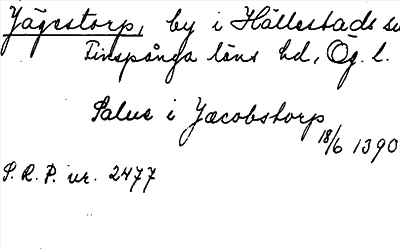 Jägestorp, by i Hällestads sn
Finspånga läns hd, Ög. l.
Palne i Jacobstorp
18/6 1390
S.R.P. nr. 2477